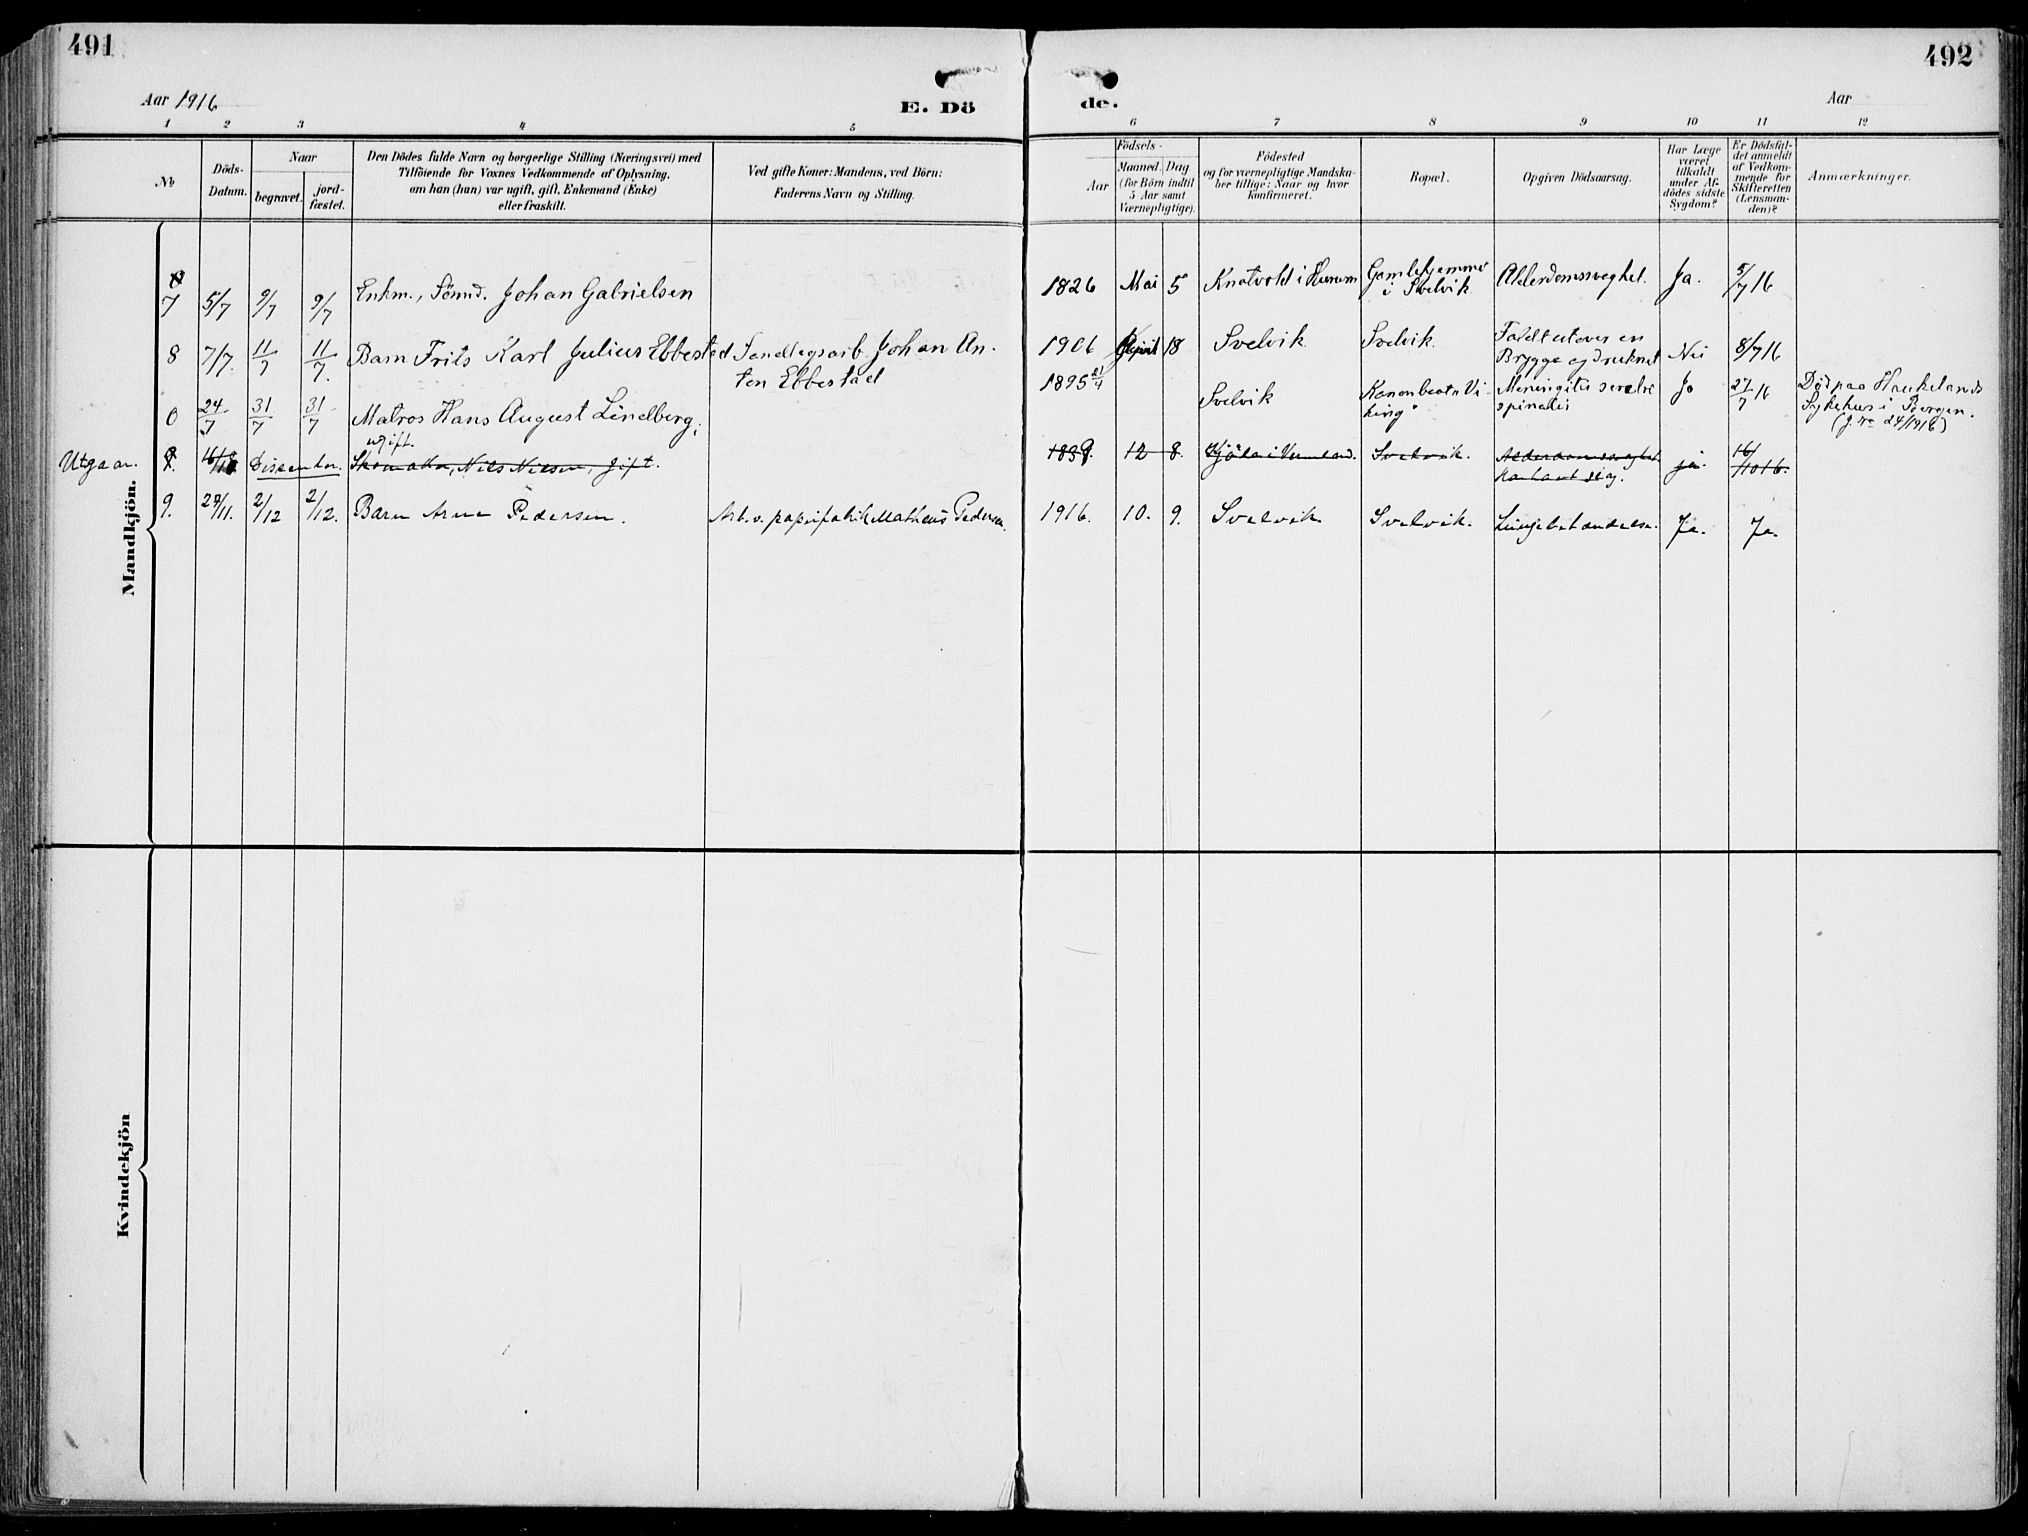 491
492
Aar 1916
E. Dö
de.
Aar
1 2 3 4 5 6 7 8 9 10 11 12
№
Döds-
Datum.
Naar
begravet.
jord-
fæstet.
Den Dödes fulde Navn og borgerlige Stilling (Næringsvei) med
Tilföiende for Voxnes Vedkommende af Oplysning,
om han (hun) var ugift, gift, Enkemand (Enke)
eller fraskilt.
Ved gifte Koner: Mandens, ved Börn:
Faderens Navn og Stilling.
Födsels-
Aar
Maaned.
Dag
(for Börn indtil
5 Aar samt
Værnepligtige).
Födested
og for værnepligtige Mandska-
ber tillige: Naar og hvor
konfirmeret.
Bopæl.
Opgiven Dödsaarsag.
Har Læge
været
tilkaldt
under Af-
dödes sidste
Sygdom?
Er Dödsfal-
det anmeldt
af Vedkom-
mende for
Skifteretten
(Lensman-
den)?
Anmærkninger.
Mandkjön.
7 5/7 9/7 9/7 Enkm., Tömd. Johan Gabrielsen 1826 Mai 5 Knatvold i Hurum Gamlehjemme
i Svelvik Alderdomssvaghet. Ja. 5/7 16
8 7/7. 11/7 11/7. Barn Frits Karl Julius Ebbestad Johan An-
ton Ebbestad 1906 April 18 Svelvik Svelvik. Faldt utover en
Brygge og druknet Nei 8/7 16
24/7 31/7 31/7 Matros Hans August Lindberg,
ugift. 1895 21/4 Svelvik Kanonbaat „Vi-
king" Meningitis
spinalis Ja 27/7 16 Död paa Haukelands
Sykehus i Bergen.
(J. No 24/1916)
Utgaar. 16/10 Dissenter. Skomaker, Nils Nilsen, gift. 1839. 12 8. i Vermland. Svelvik. Alderdomssvaghet
ja. 16/10 16.
9. 27/11. 2/12 2/12. Barn Arne Pedersen. Arb. v. papirfabrik Matheus Pedersen 1916. 10. 9. Svelvik. Svelvik. Lungebetændelse. Ja. Ja.
Kvindekjön